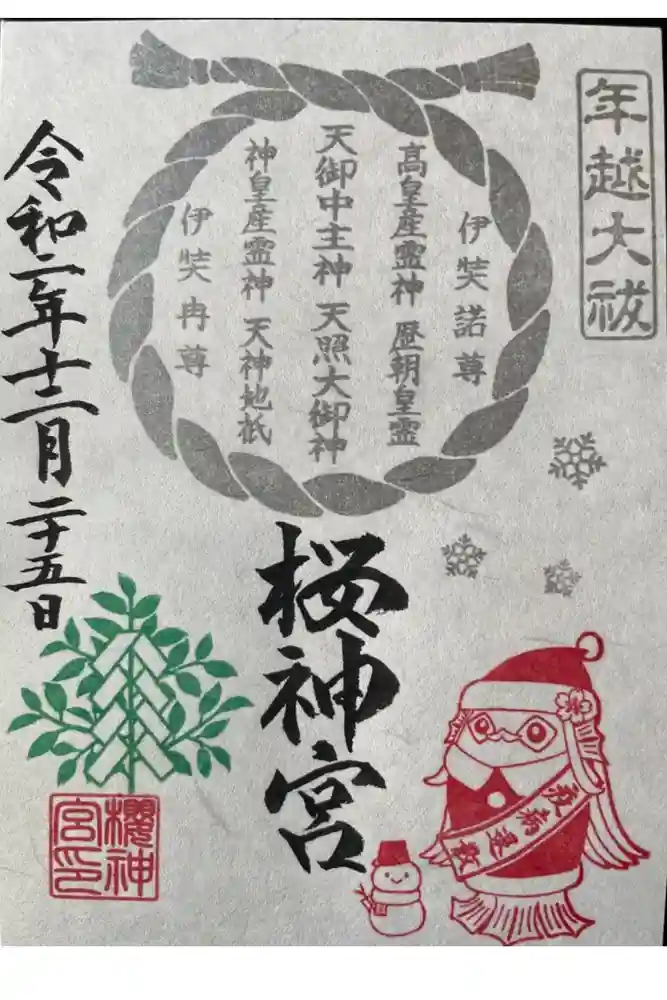 年越大祓
伊弉諾尊
高皇産霊神 歴朝皇霊
天御中主神 天照大御神
神皇産霊神 天神地祇
伊弉冉尊
桜神宮
令和二年十二月二十五日
櫻神
宮印
疫病退散